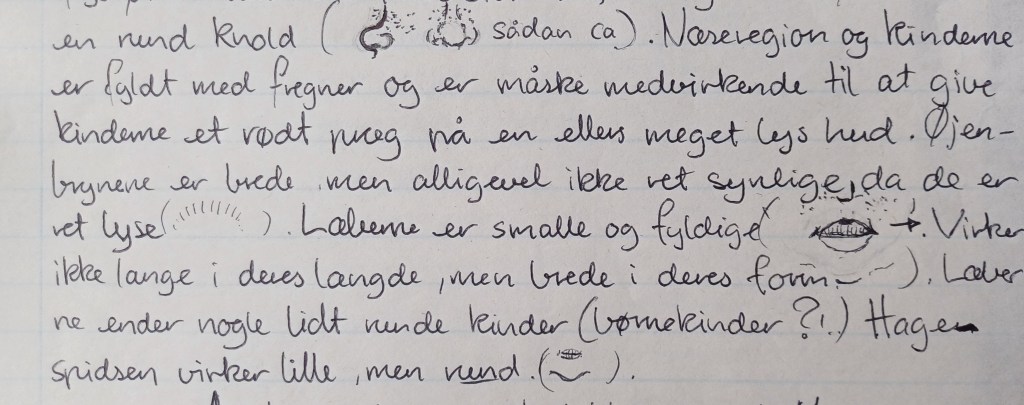 en rund knold ( sådan ca). Næseregion og kinderne
er fyldt med fregner og er måske medvirkende til at give
kinderne et rødt præg på en ellers meget lys hud. Øjen-
brynene er brede, men alligevel ikke ret synlige, da de er
ret lyse ( ). Læberne er smalle og fyldige ( . Virker
ikke lange i deres længde, men brede i deres form ). Læber
ne ender nogle lidt runde kinder (børnekinder ?!.) Hage
spidsen virker lille, men rund. ( ).